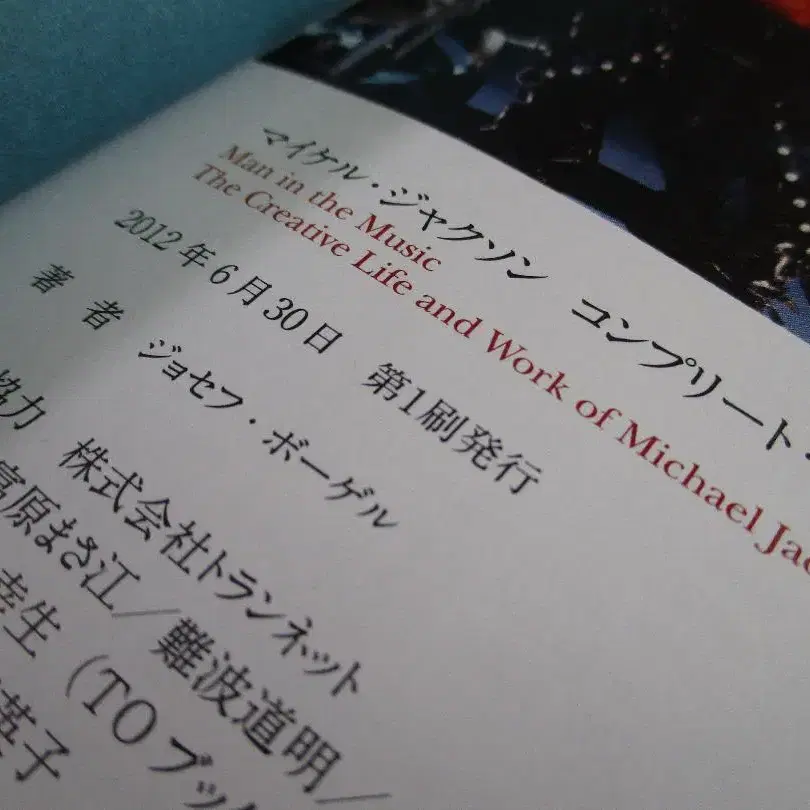 マイケル・ジャクソン コンプリート・
Man in the Music
The Creative Life and Work of Michael Jac
2012年6月30日 第1刷発行
著者 ジョセフ・ボーゲル
協力 株式会社トランネット
富原まさ江/難波道明/
幸生(TOブック
英子